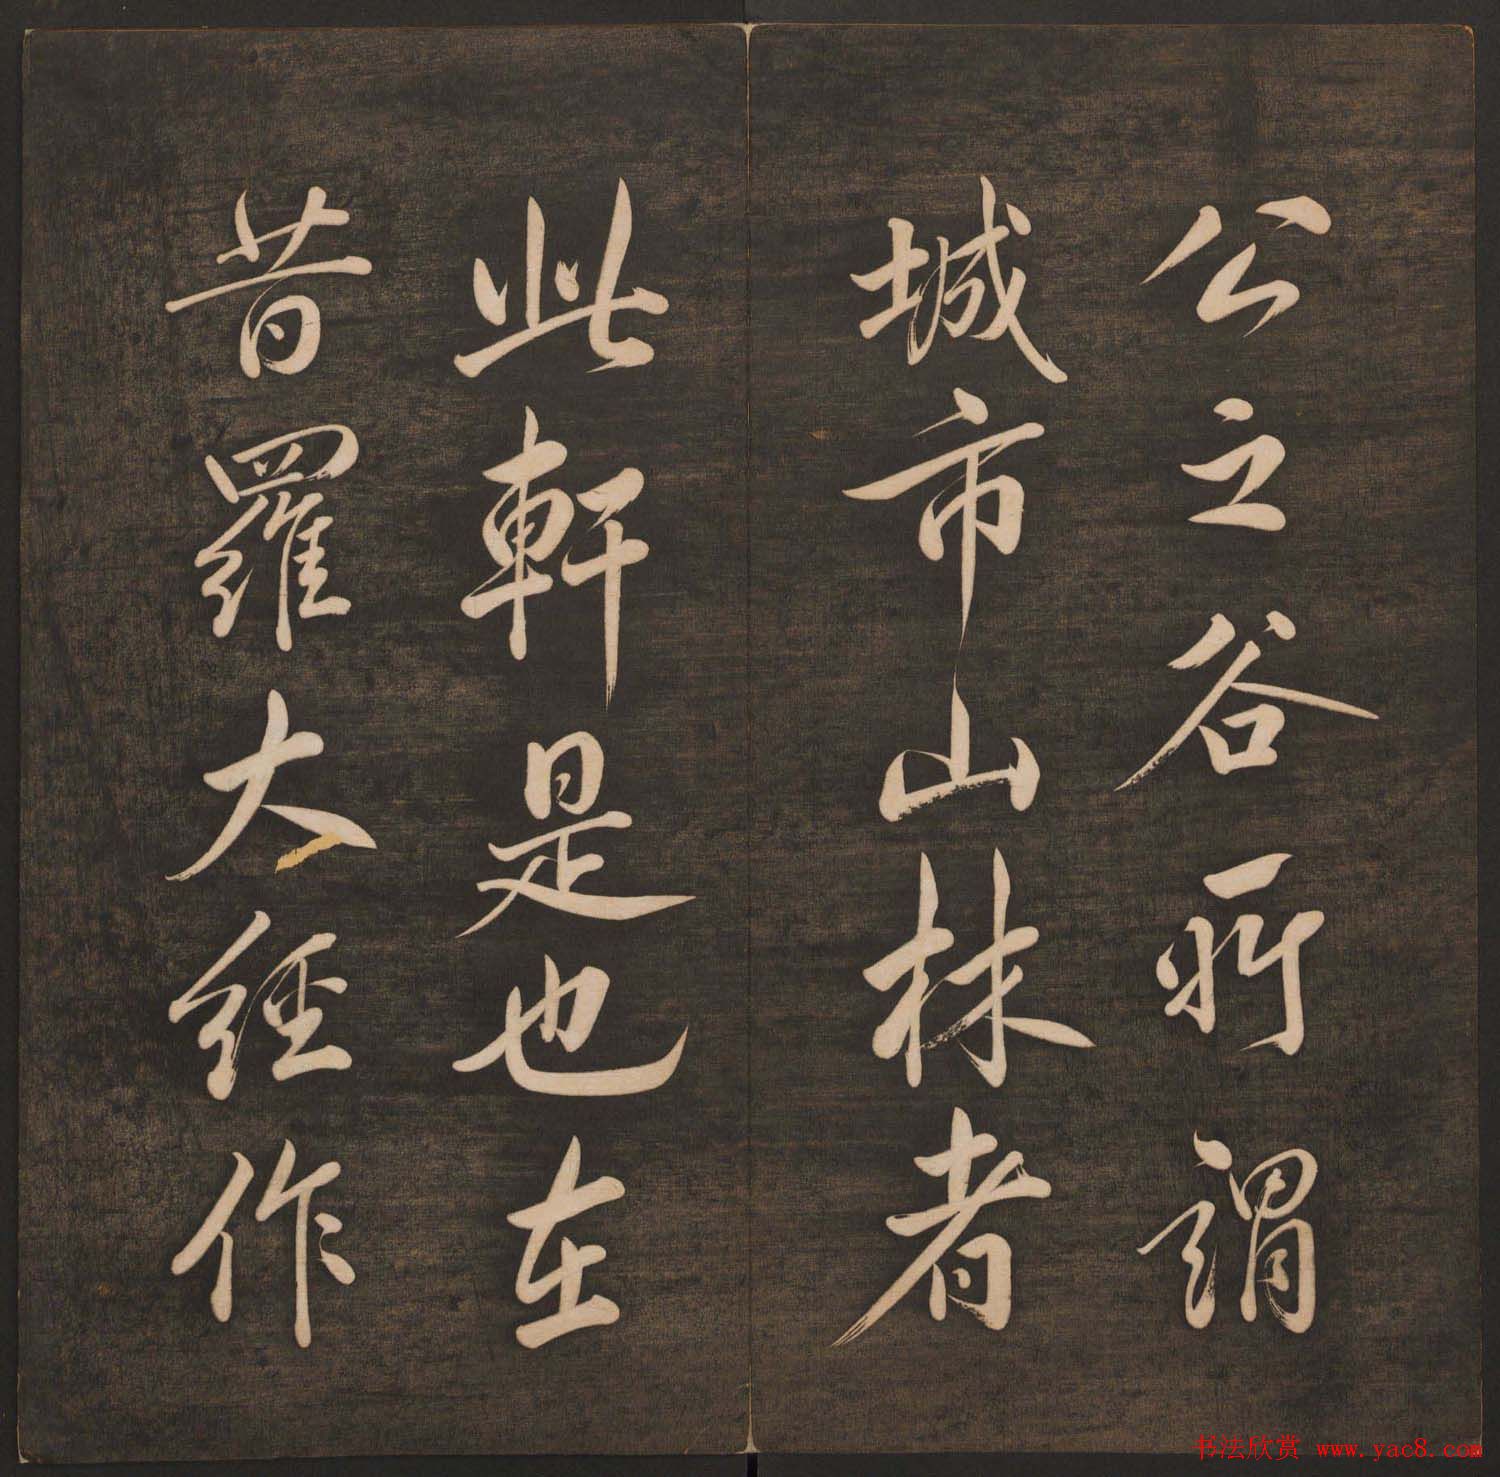 公之谷所謂
城市山林者
此軒是也在
昔羅大經作
书法欣赏 www.yac8.com